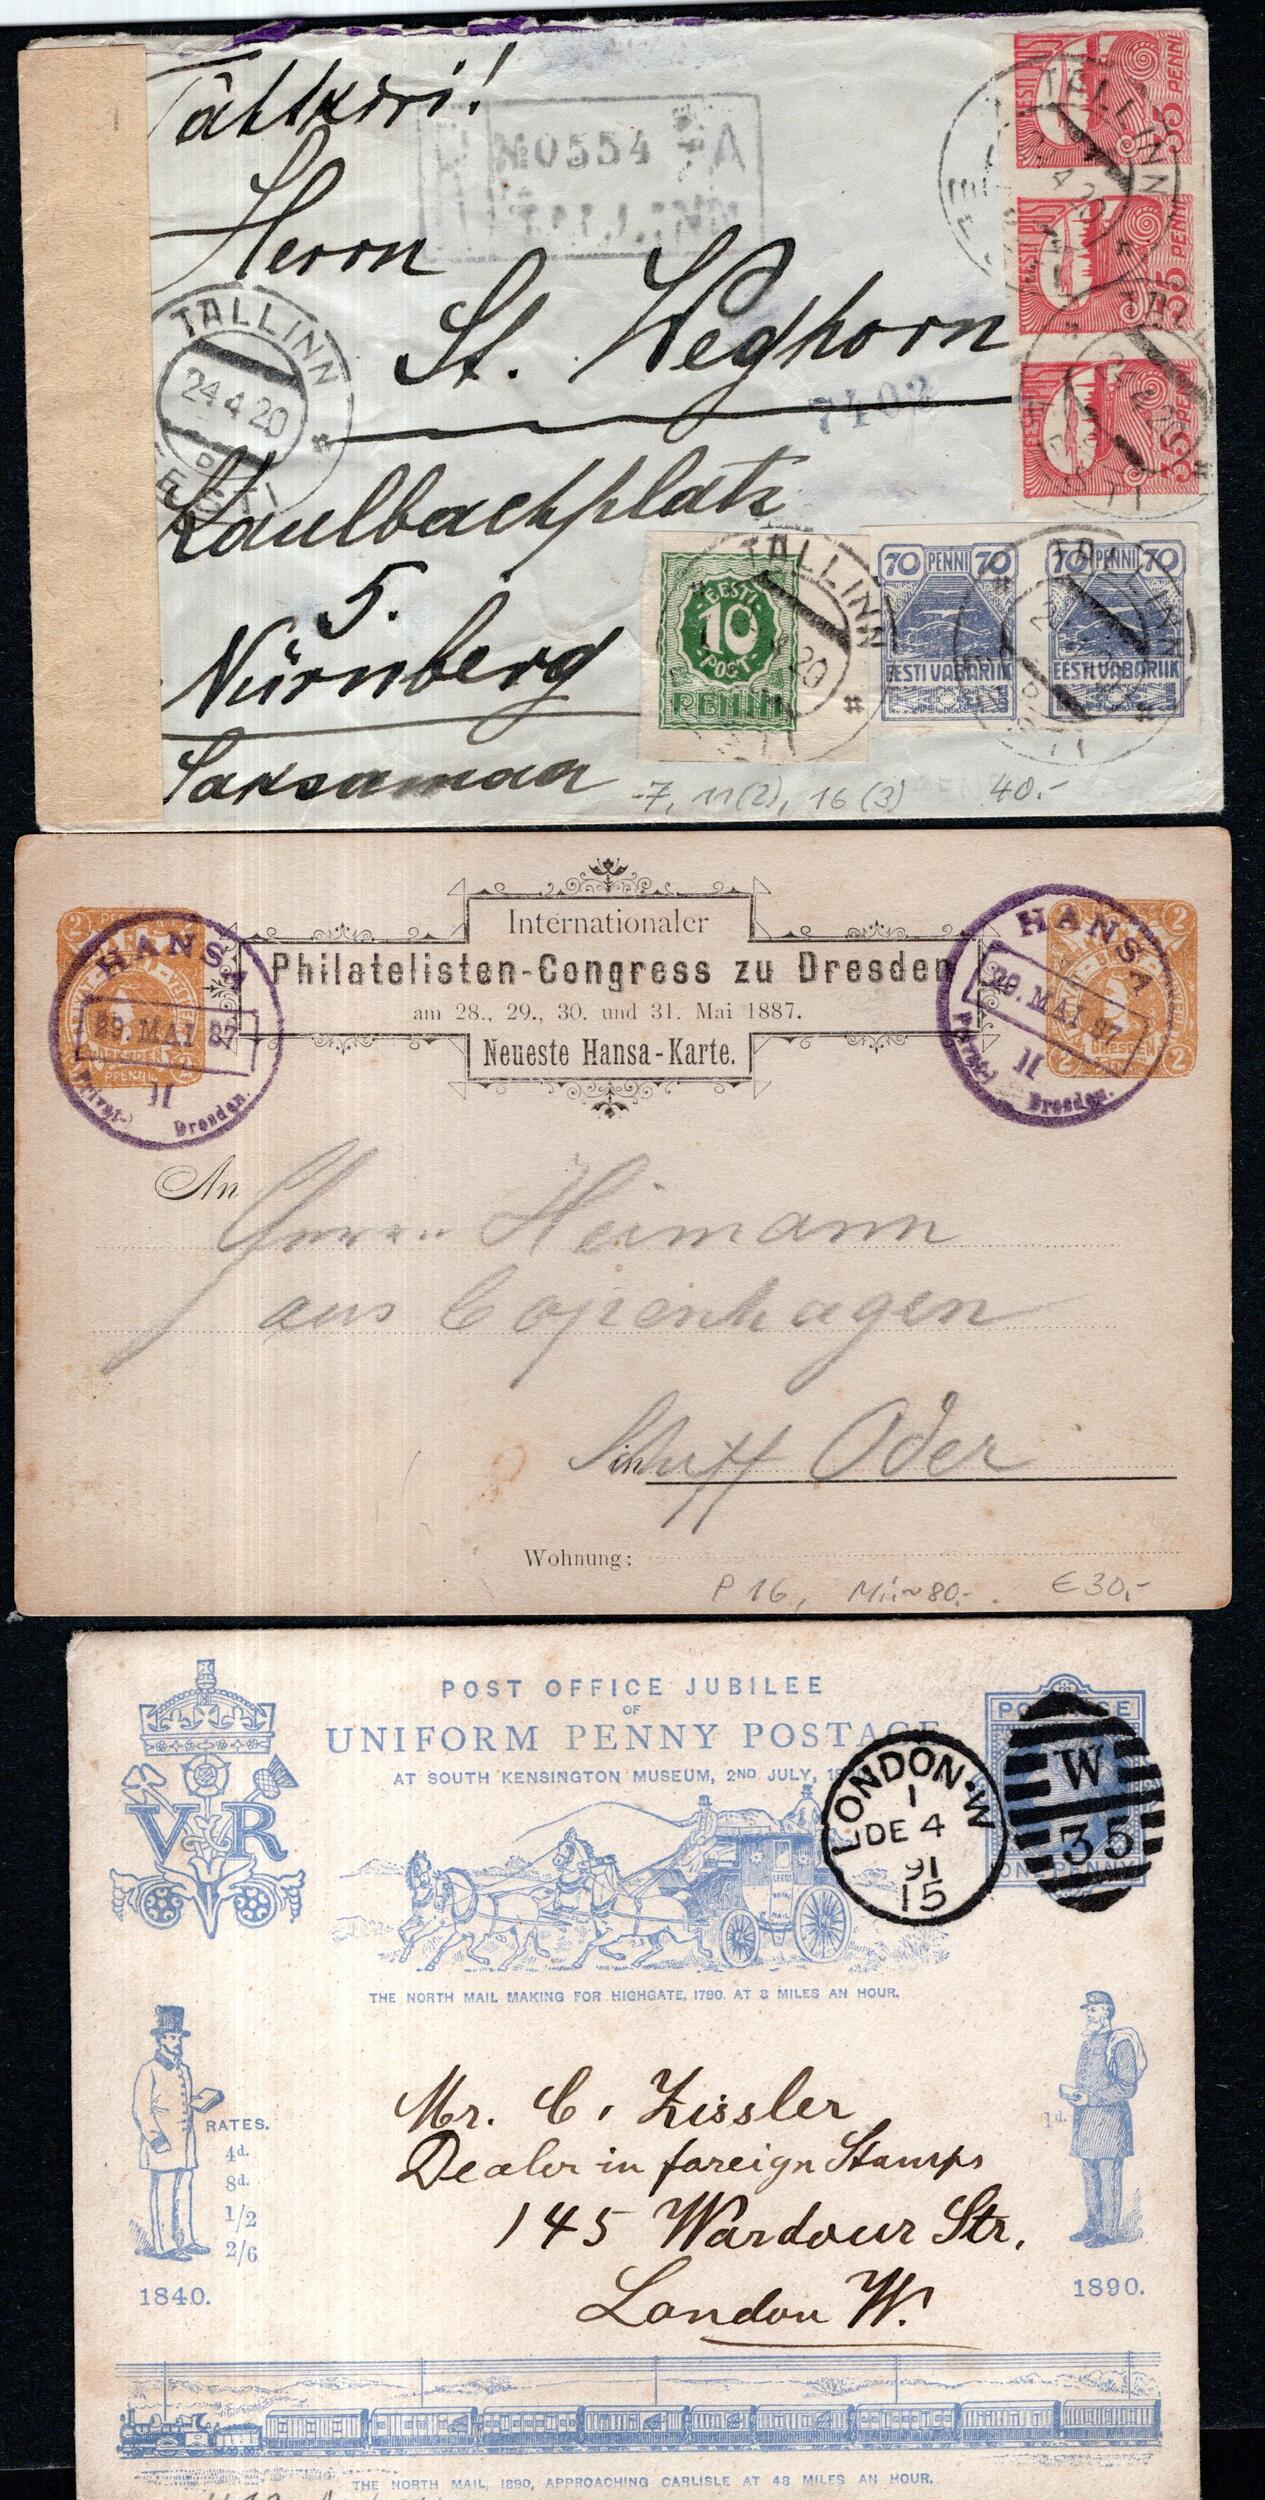 Tähtkiri!
R № 0554 A
TALLINN
Herrn
St. Weghorn
7402
Kaulbachplatz
5.
Nürnberg
Saksamaa
TALLINN
24.4.20
EESTI
EESTI POST
35 PENNI
EESTI POST
35 PENNI
EESTI POST
35 PENNI
TALLINN
EESTI
EESTI
10
POST
PENNI
TALLINN
70 PENNI 70
EESTI VABARIIK
70 PENNI 70
EESTI VABARIIK
TALLINN
7, 11(2), 16(3) 40.-
Internationaler
Philatelisten-Congress zu Dresden
am 28., 29., 30. und 31. Mai 1887.
Neueste Hansa-Karte.
HANSA
29. MAI 87
II
Privat- Dresden.
2
PFENNIG
HANSA
29. MAI 87
II
Privat- Dresden.
2
DRESDEN
An
Herrn Heimann
aus Copenhagen
in Schiff Oder
Wohnung:
P 16, Mi~80,- €30,-
POST OFFICE JUBILEE
OF
UNIFORM PENNY POSTAGE
AT SOUTH KENSINGTON MUSEUM, 2ND JULY,
VR
LEEDS
ROYAL
MAIL
LONDON·W
1
DE 4
91
15
W
35
POSTAGE
ONE PENNY
THE NORTH MAIL MAKING FOR HIGHGATE, 1790. AT 8 MILES AN HOUR.
RATES.
4d.
8d.
1/2
2/6
1840.
1d.
1890.
Mr. C. Zissler
Dealer in foreign Stamps
145 Wardour Str.
London W.
THE NORTH MAIL, 1890, APPROACHING CARLISLE AT 48 MILES AN HOUR.